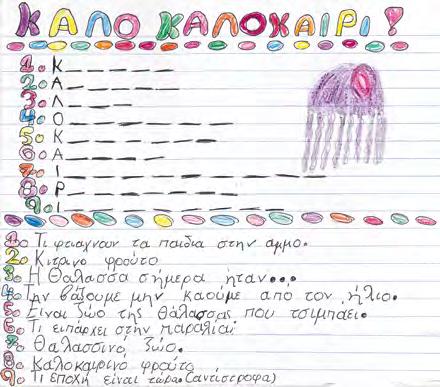 ΚΑΛΟ ΚΑΛΟΚΑΙΡΙ!
1. Κ_ _ _ _ _ _
2. Α_ _ _ _ _ _
3. Λ_ _ _
4. Ο_ _ _ _ _ _ _ _
5. Κ_ _ _ _ _ _
6. Α_ _ _ _
7. Ι_ _ _ _ _ _ _ _ _ _
8. Ρ_ _ _ _ _ _ _
9. Ι_ _ _ _ _ _ _ _
1. Τι φτιαγνουν τα παιδια στην αμμο.
2. Κιτρινο φρούτο
3. Η θαλασσα σήμερα ήταν...
4. Την βάζουμε μην καούμε από τον ήλιο.
5. Είναι ζώο της θάλασσας που τσιμπάει.
6. Τι ειπάρχει στην παραλία;
7. Θαλασσινό ζώο.
8. Καλοκαιρινο φρούτο
9. Τι εποχή είναι τώρα. (αντίστροφα)